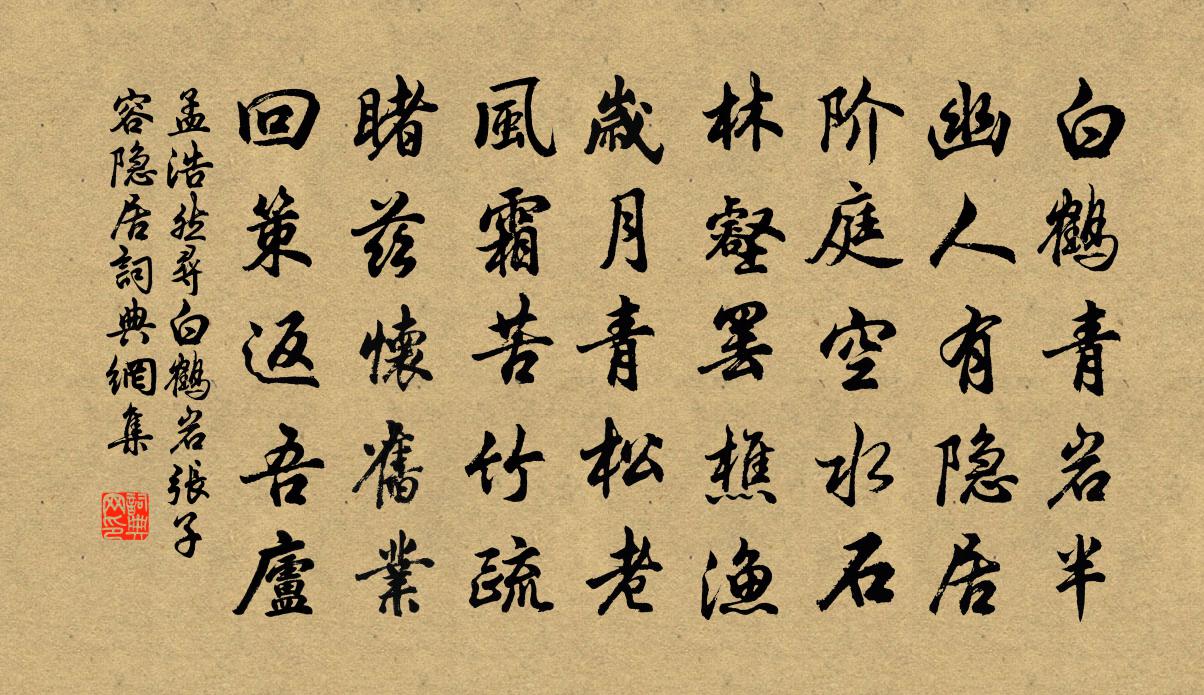 白鹤青岩半
幽人有隐居
阶庭空水石
林壑罢樵渔
歳月青松老
風霜苦竹疏
睹兹懷舊業
回策返吾廬
孟浩然尋白鶴岩張子
容隐居詞典網集
詞典网印